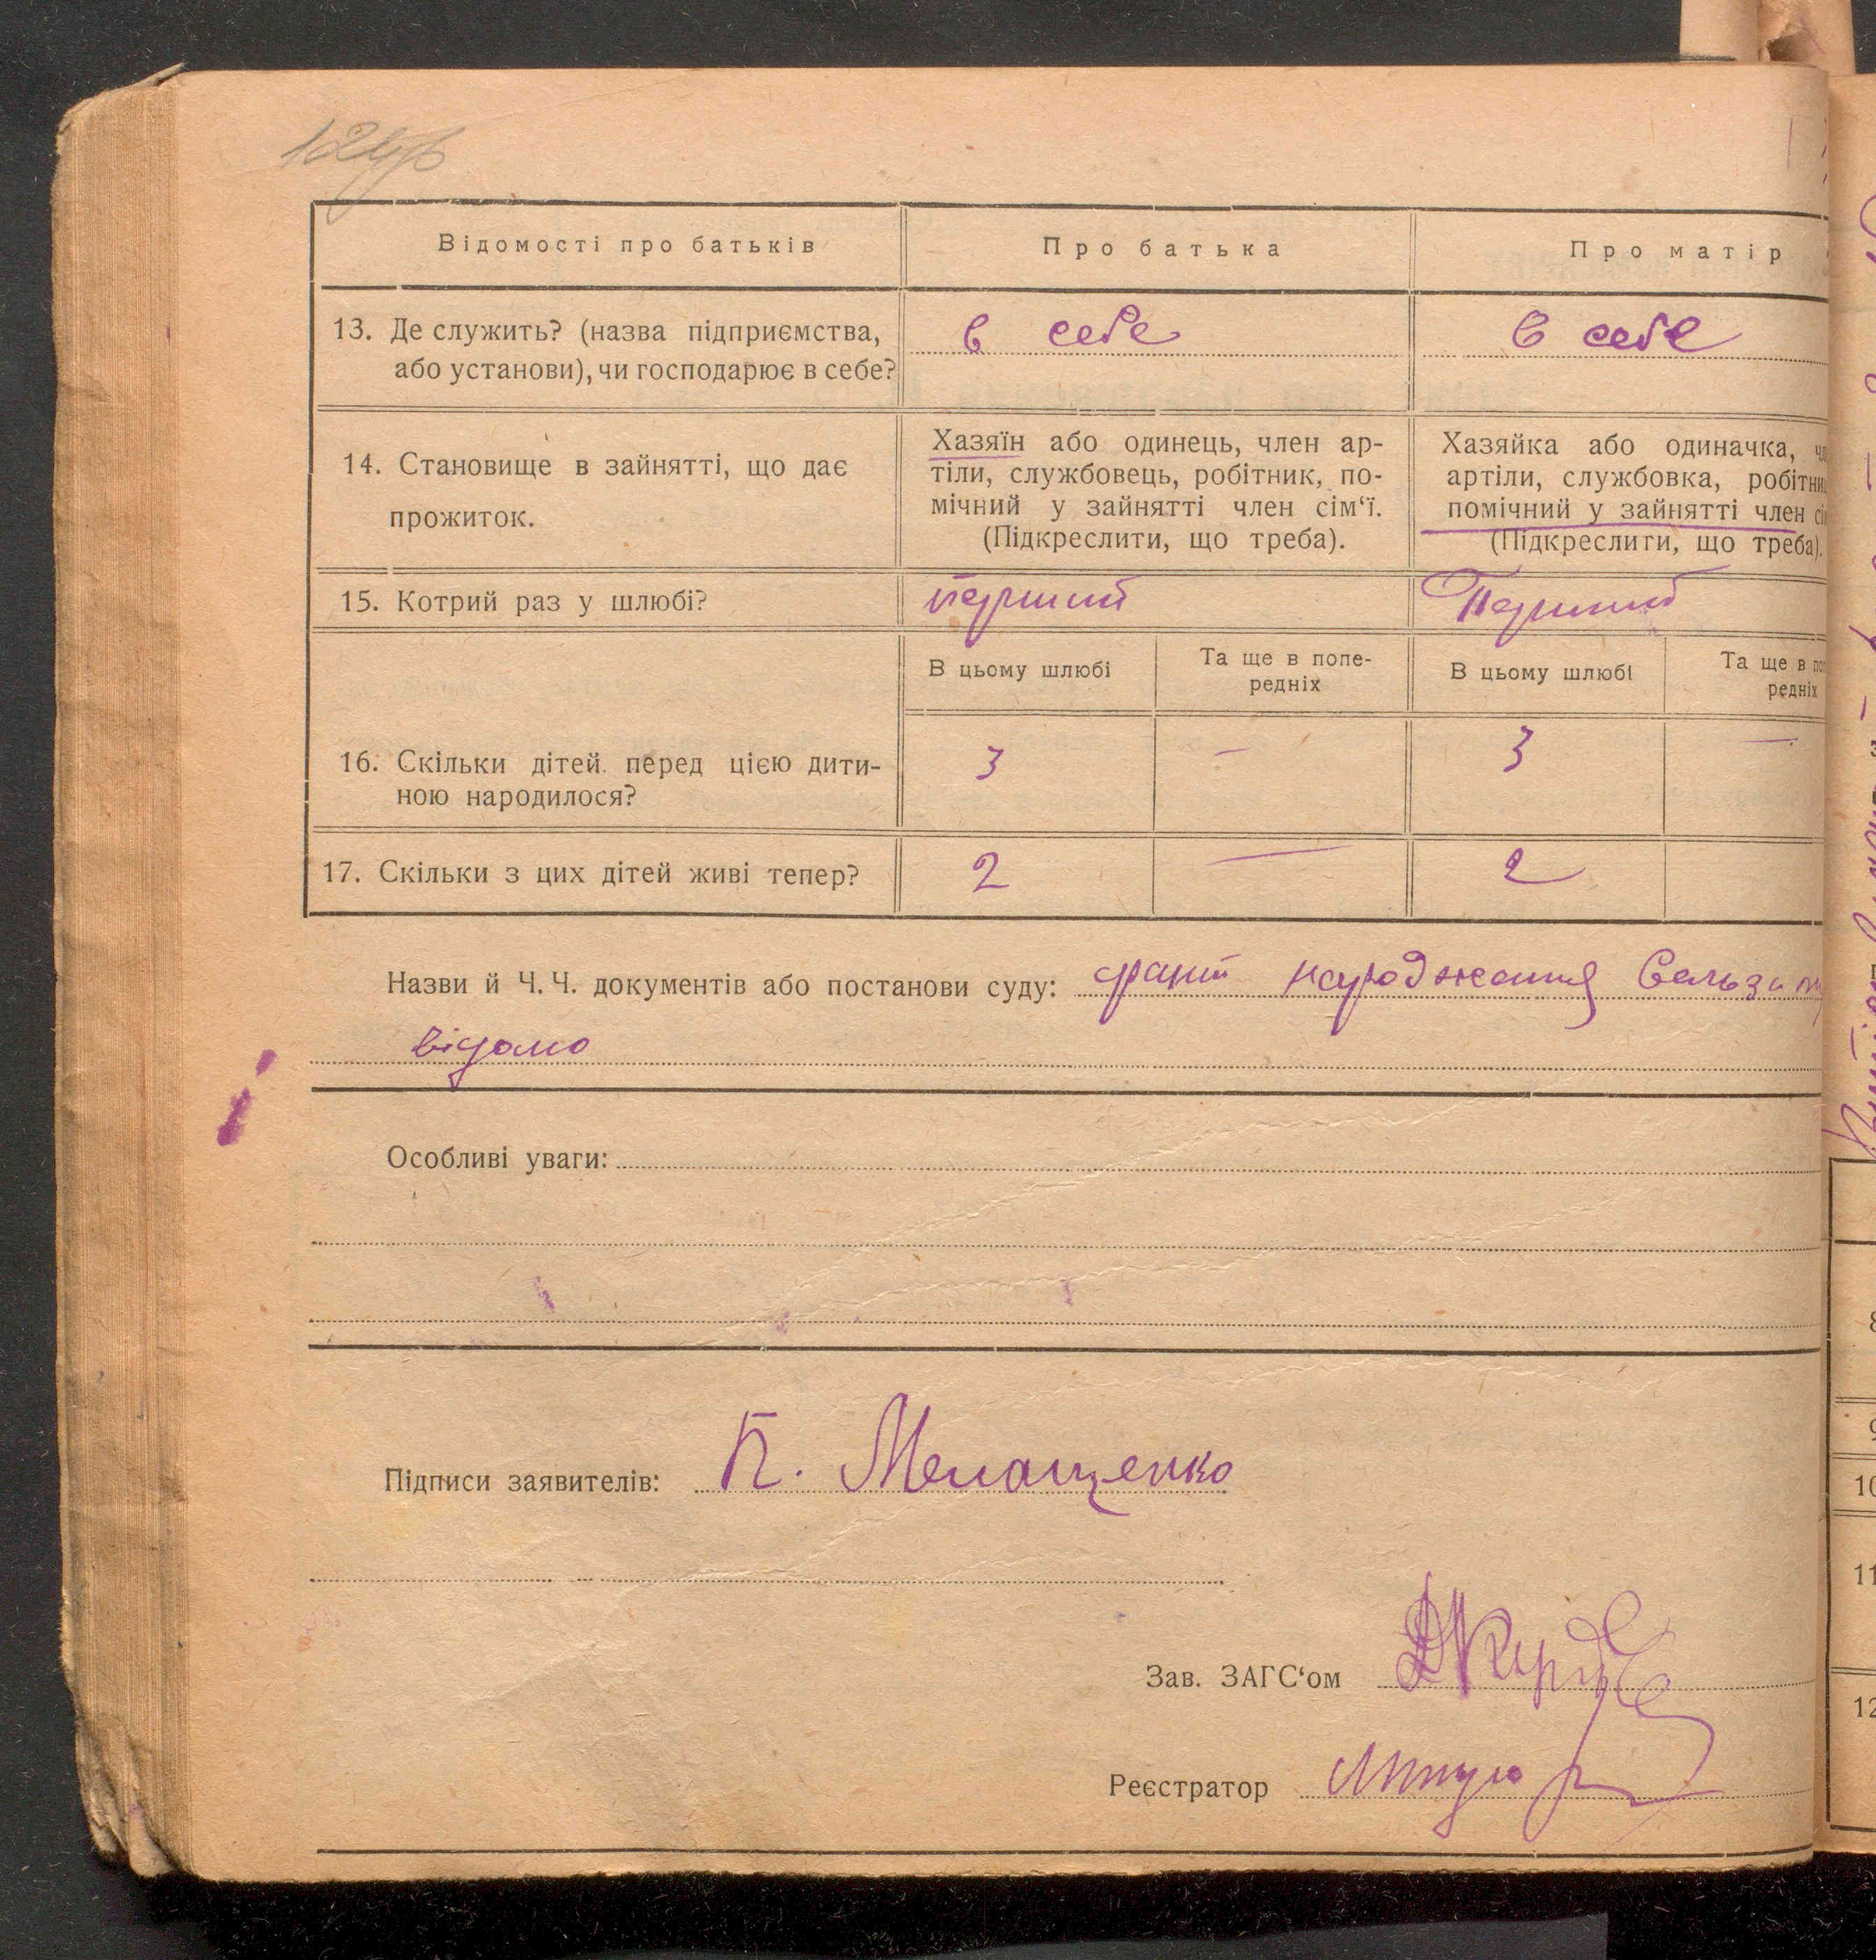 Відомості про батьків Про батька Про матір
13. Де служить? (назва підприємства, в себе в себе
або установи), чи господарює в себе?
14. Становище в зайнятті, що дає прожиток.
Хазяїн або одинець, член ар-
тіли, службовець, робітник, по-
мічний у зайнятті член сім‘ї.
(Підкреслити, що треба).
Хазяйка або одиначка,
артіли, службовка,
помічний у зайнятті член
(Підкреслити, що треба).
15. Котрий раз у шлюбі? перший Перший
В цьому шлюбі Та ще в попе- В цьому шлюбі Та ще в
редніх редніх
16. Скільки дітей перед цією дити- 3 — 3 —
ною народилося?
17. Скільки з цих дітей живі тепер? 2 — 2
Назви й Ч. Ч. документів або постанови суду: факт народження
відомо
Особливі уваги:
Підписи заявителів: П. Мелащенко
Зав. ЗАГС‘ом
Реєстратор
9
10
11
12